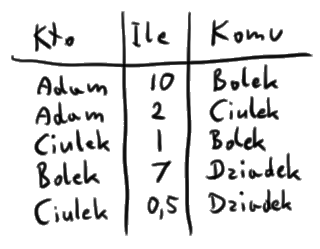 Kto Ile Komu
Adam 10 Bolek
Adam 2 Ciulek
Ciulek 1 Bolek
Bolek 7 Dziadek
Ciulek 0,5 Dziadek